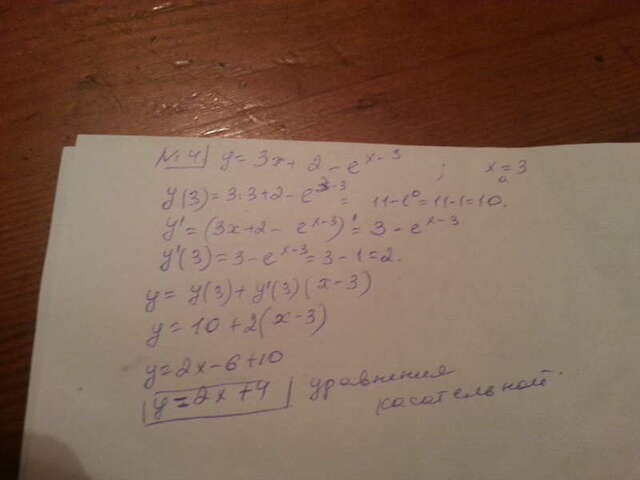 №4 y = 3x + 2 - e^{x-3} ; x₀ = 3
y(3) = 3·3 + 2 - e^{3-3} = 11 - e⁰ = 11 - 1 = 10.
y' = (3x + 2 - e^{x-3})' = 3 - e^{x-3}
y'(3) = 3 - e^{x-3} = 3 - 1 = 2.
y = y(3) + y'(3)(x - 3)
y = 10 + 2(x - 3)
y = 2x - 6 + 10
y = 2x + 4 уравнения
касательной.